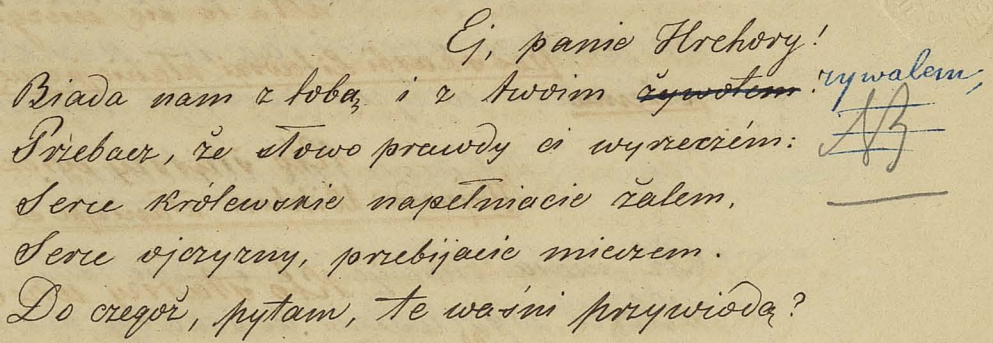 Ej, panie Hrehory!
Biada nam z tobą i z twoim żywotem! rywalem,
Przebacz, że słowo prawdy ci wyrzeczém:
NB
Serce królewskie napełniacie żalem,
Serce ojczyzny, przebijacie mieczem.
Do czegoż, pytam, te waśni przywiodą?